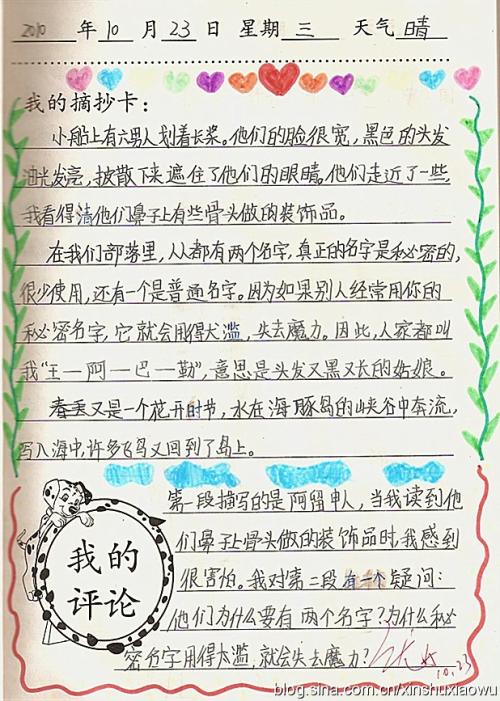 2010 年 10 月 23 日 星期 三 天气 晴
我的摘抄卡：
小船上有六男人划着长桨。他们的脸很宽，黑色的头发
油光发亮，披散下来遮住了他们的眼睛。他们走近了一些，
我看得清他们鼻子上有些骨头做的装饰品。
在我们部落里，人人都有两个名字，真正的名字是秘密的，
很少使用，还有一个是普通名字。因为如果别人经常用你的
秘密名字，它就会用得太滥，失去魔力。因此，人家都叫
我“王—阿—巴—勒”，意思是头发又黑又长的姑娘。
春天又是一个花开时节，水在海豚岛的峡谷中奔流，
写入海中，许多飞鸟又回到了岛上。
我的
评论
第一段描写的是阿留申人，当我读到他
们鼻子上骨头做的装饰品时，我感到
很害怕。我对第二段有一个疑问：
他们为什么要有两个名字？为什么秘
密名字用得太滥，就会失去魔力？
10.23
blog.sina.com.cn/xinshuxiaowu